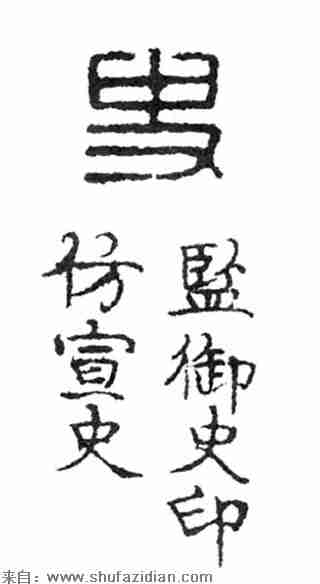 史
監御史印
仿宣史
来自：www.shufazidian.com